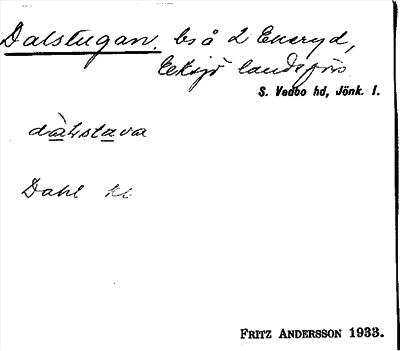 Dalstugan, bs å 2 Ekeryd,
Eksjö landsförs.
S. Vedbo hd, Jönk. l.
dàlstava
Dahl
FRITZ ANDERSSON 1933.